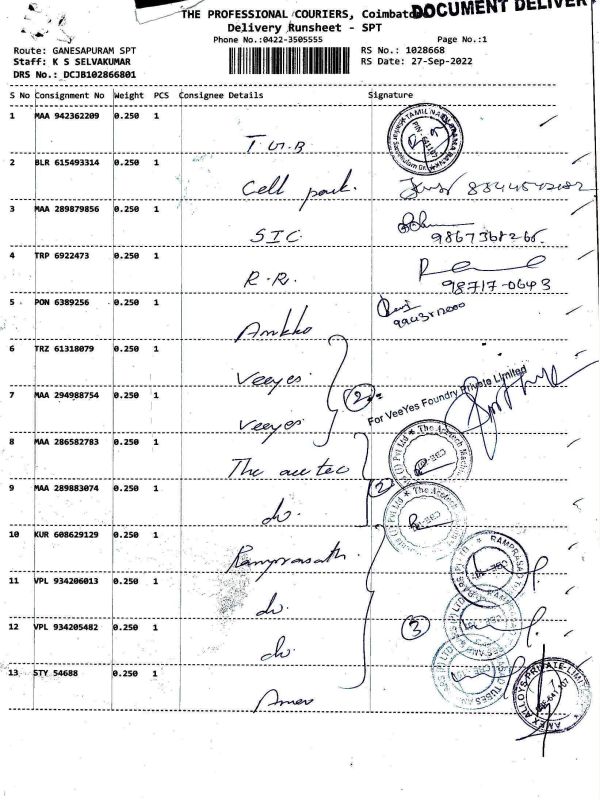 DOCUMENT DELIVER
THE PROFESSIONAL COURIERS, Coimbato
Delivery Runsheet - SPT
Phone No.:0422-3505555
Page No.:1
Route: GANESAPURAM SPT
RS No.: 1028668
Staff: K S SELVAKUMAR
RS Date: 27-Sep-2022
DRS No.: DCJB102866801
S No Consignment No Weight PCS Consignee Details Signature
1 MAA 942362209 0.250 1
2 BLR 615493314 0.250 1 Cell park.
3 MAA 289879856 0.250 1 SIC
9867368266.
4 TRP 6922473 0.250 1 R.R.
98717-0643
5 PON 6389256 0.250 1
6 TRZ 61318079 0.250 1 Veeyes
7 MAA 294988754 0.250 1 Veeyes 2
For VeeYes Foundry Private Limited
8 MAA 286582783 0.250 1 The acetec
The Acetech Machin
(I) Pvt Ltd
9 MAA 289883074 0.250 1 do. 2
The Acetech
(I) Pvt Ltd
10 KUR 608629129 0.250 1 Ramprasath.
RAMPRASAD
11 VPL 934206013 0.250 1 do.
12 VPL 934205482 0.250 1 do. 3
13 STY 54688 0.250 1
AMEX ALLOYS PRIVATE LIMI